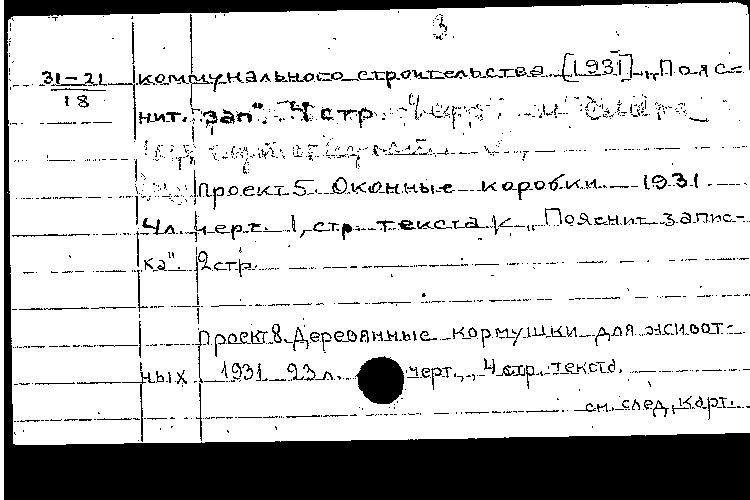 3
31-21
18
коммунального строительства [1931] „Пояс-
нит. зап". 4 стр.
проект 5. Оконные коробки 1931
4 л. черт. 1, стр. текста „Пояснит запис-
ка". 2 стр.
проект 8. Деревянные кормушки для живот-
ных 1931 23 л. черт., 4 стр. текста.
см. след, карт.